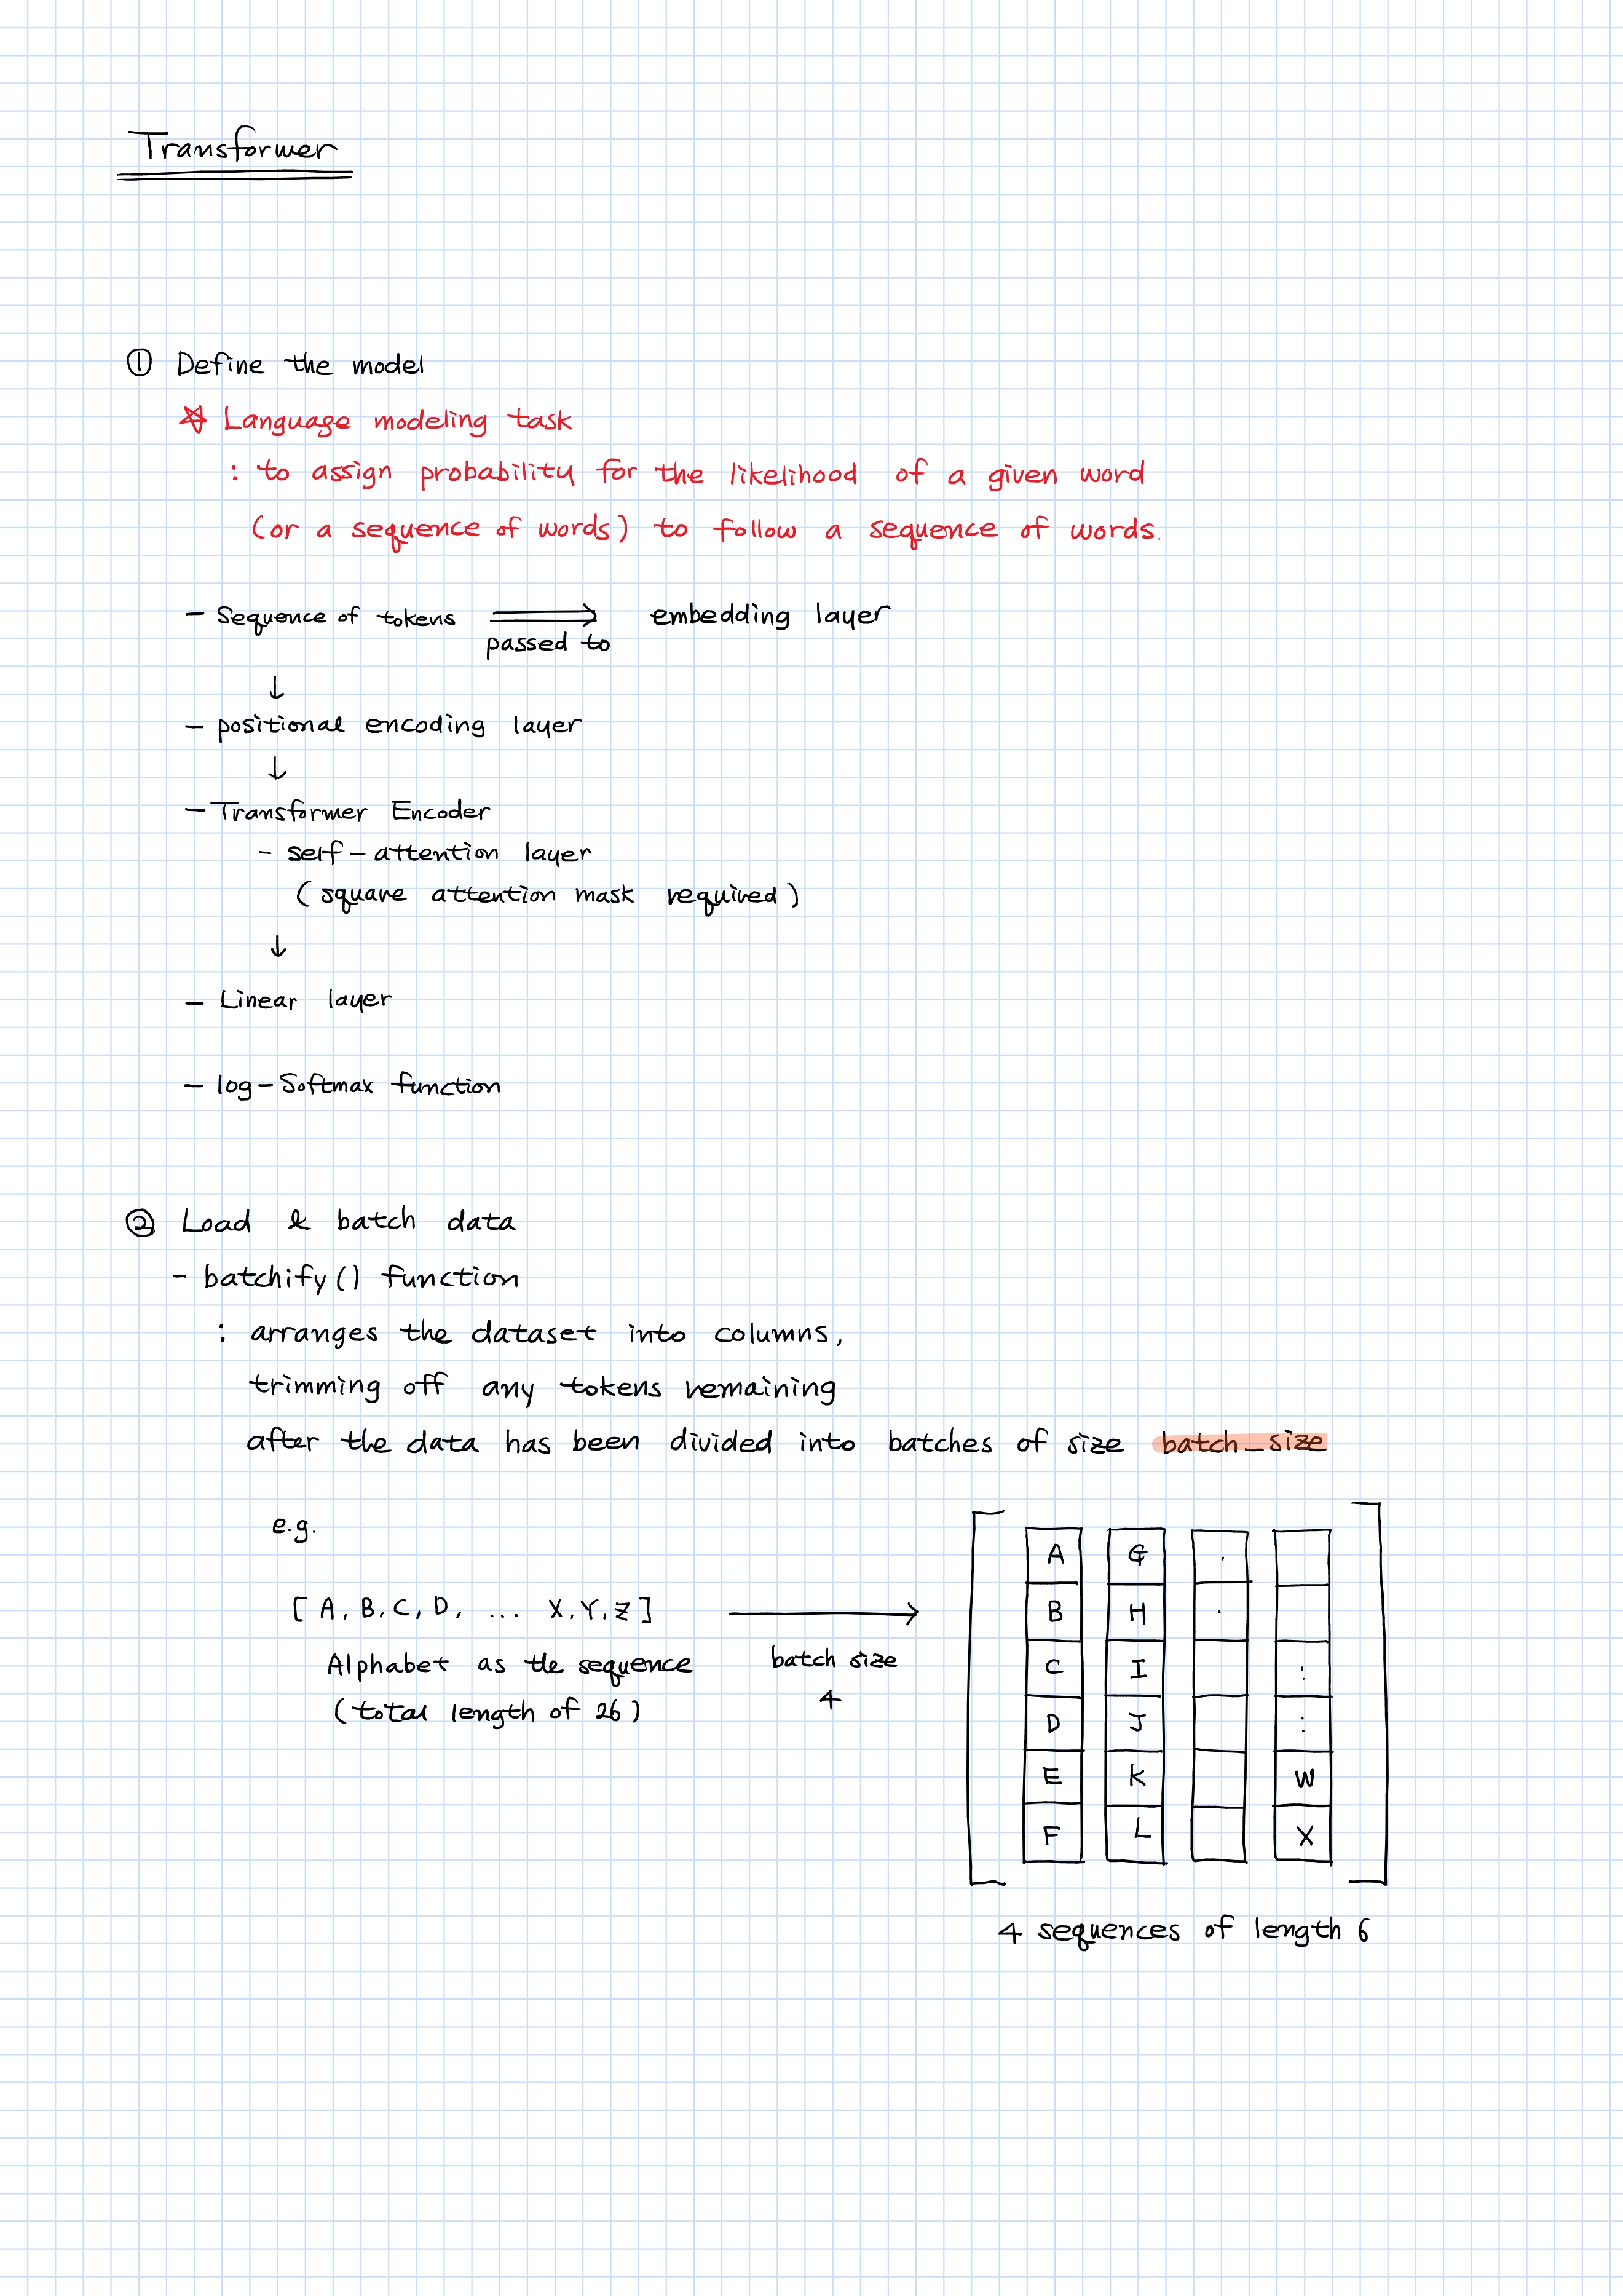 Transformer
① Define the model
☆ Language modeling task
: to assign probability for the likelihood of a given word
(or a sequence of words) to follow a sequence of words.
- Sequence of tokens ⇒ embedding layer
passed to
↓
- positional encoding layer
↓
- Transformer Encoder
- self-attention layer
(square attention mask required)
↓
- Linear layer
- log-Softmax function
② Load & batch data
- batchify() function
: arranges the dataset into columns,
trimming off any tokens remaining
after the data has been divided into batches of size batch_size
e.g.
[A, B, C, D, ... X, Y, Z] →
Alphabet as the sequence batch size
(total length of 26) 4
A G .
B H .
C I :
D J :
E K W
F L X
4 sequences of length 6